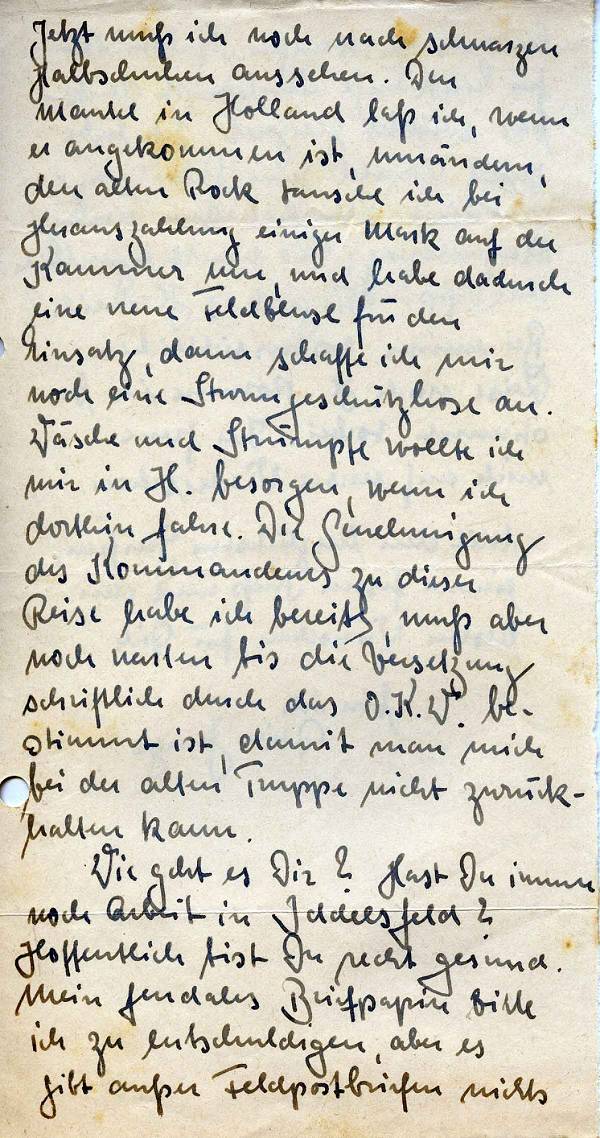 Jetzt muß ich noch nach schwarzen
Halbschuhen aussehen. Den
Mantel in Holland laß ich, wenn
er angekommen ist, umändern,
den alten Rock tausche ich bei
Herauszahlung einiger Mark auf der
Kammer um, und habe dadurch
eine neue Feldbluse für den
Einsatz, dann schaffe ich mir
noch eine Sturmgeschützhose an.
Wäsche und Strümpfe wollte ich
mir in H. besorgen, wenn ich
dorthin fahre. Die Genehmigung
des Kommandeurs zu dieser
Reise habe ich bereits, muß aber
noch warten bis die Versetzung
schriftlich durch das O.K.W. be-
stimmt ist, damit man mich
bei der alten Truppe nicht zurück-
halten kann.
Wie geht es Dir? Hast Du immer
noch Arbeit in Iddelsfeld?
Hoffentlich bist Du recht gesund.
Mein feudales Briefpapier bitte
ich zu entschuldigen, aber es
gibt außer Feldpostbriefen nichts